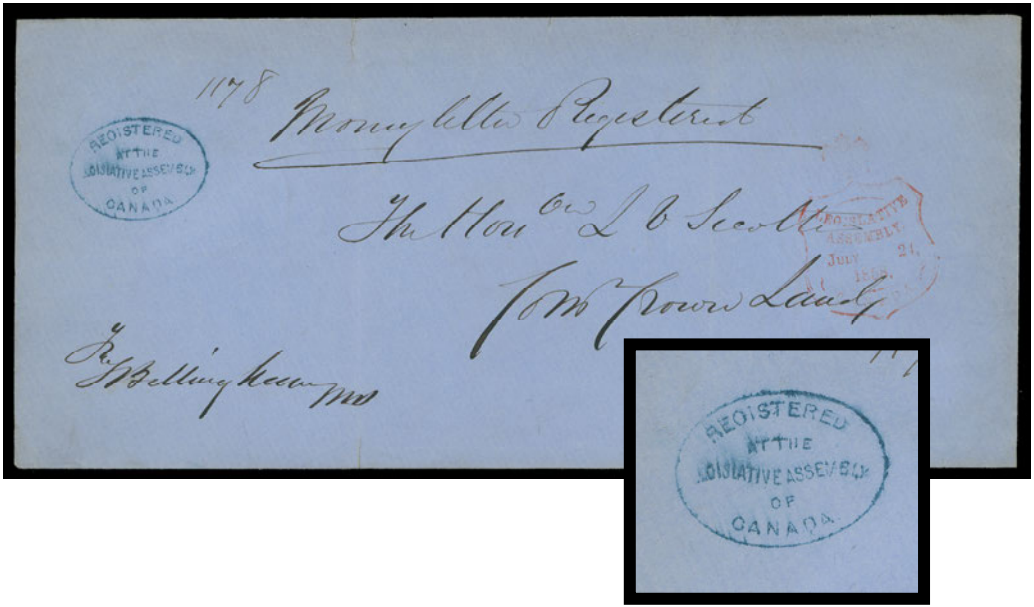 1178
Money letter Registered
REGISTERED
AT THE
LEGISLATIVE ASSEMBLY
OF
CANADA
The Honble L V Sicotte
LEGISLATIVE
ASSEMBLY.
JULY 21,
1858.
Comr Crown Lands
Bellingham
REGISTERED
AT THE
LEGISLATIVE ASSEMBLY
OF
CANADA